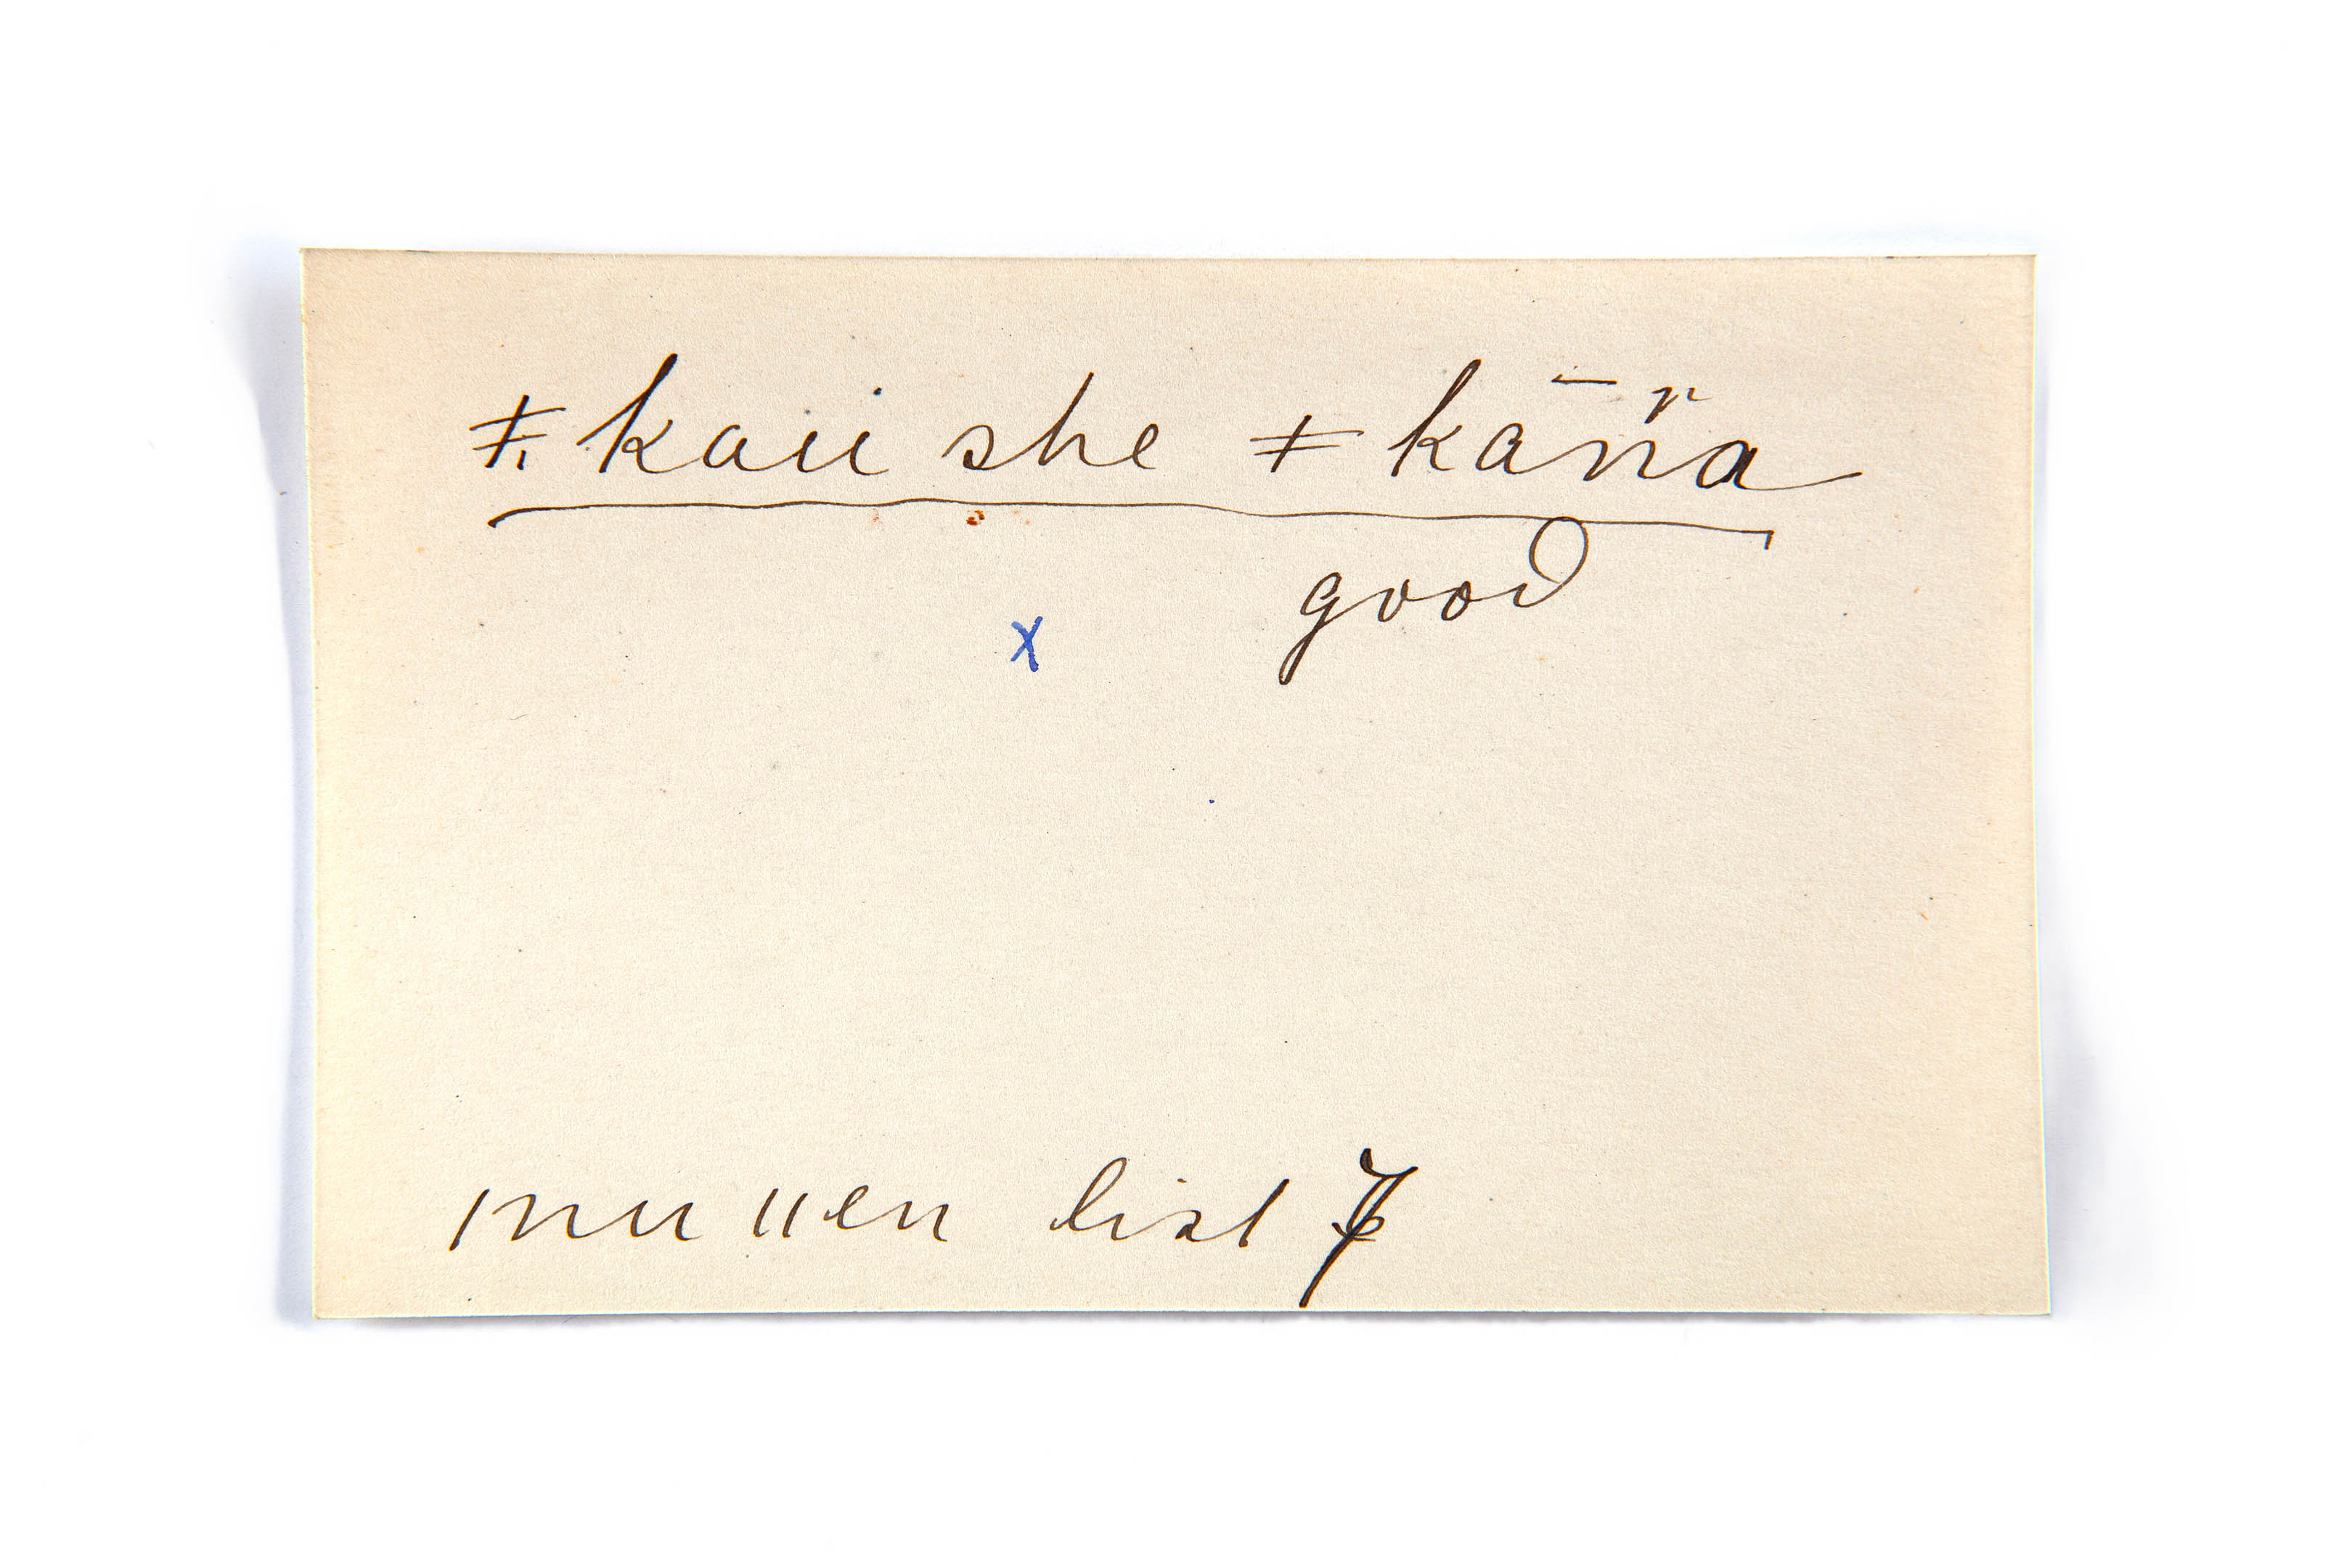 ǂkaii she ǂkān̈a
good
x
ǀnu ǁen list 7